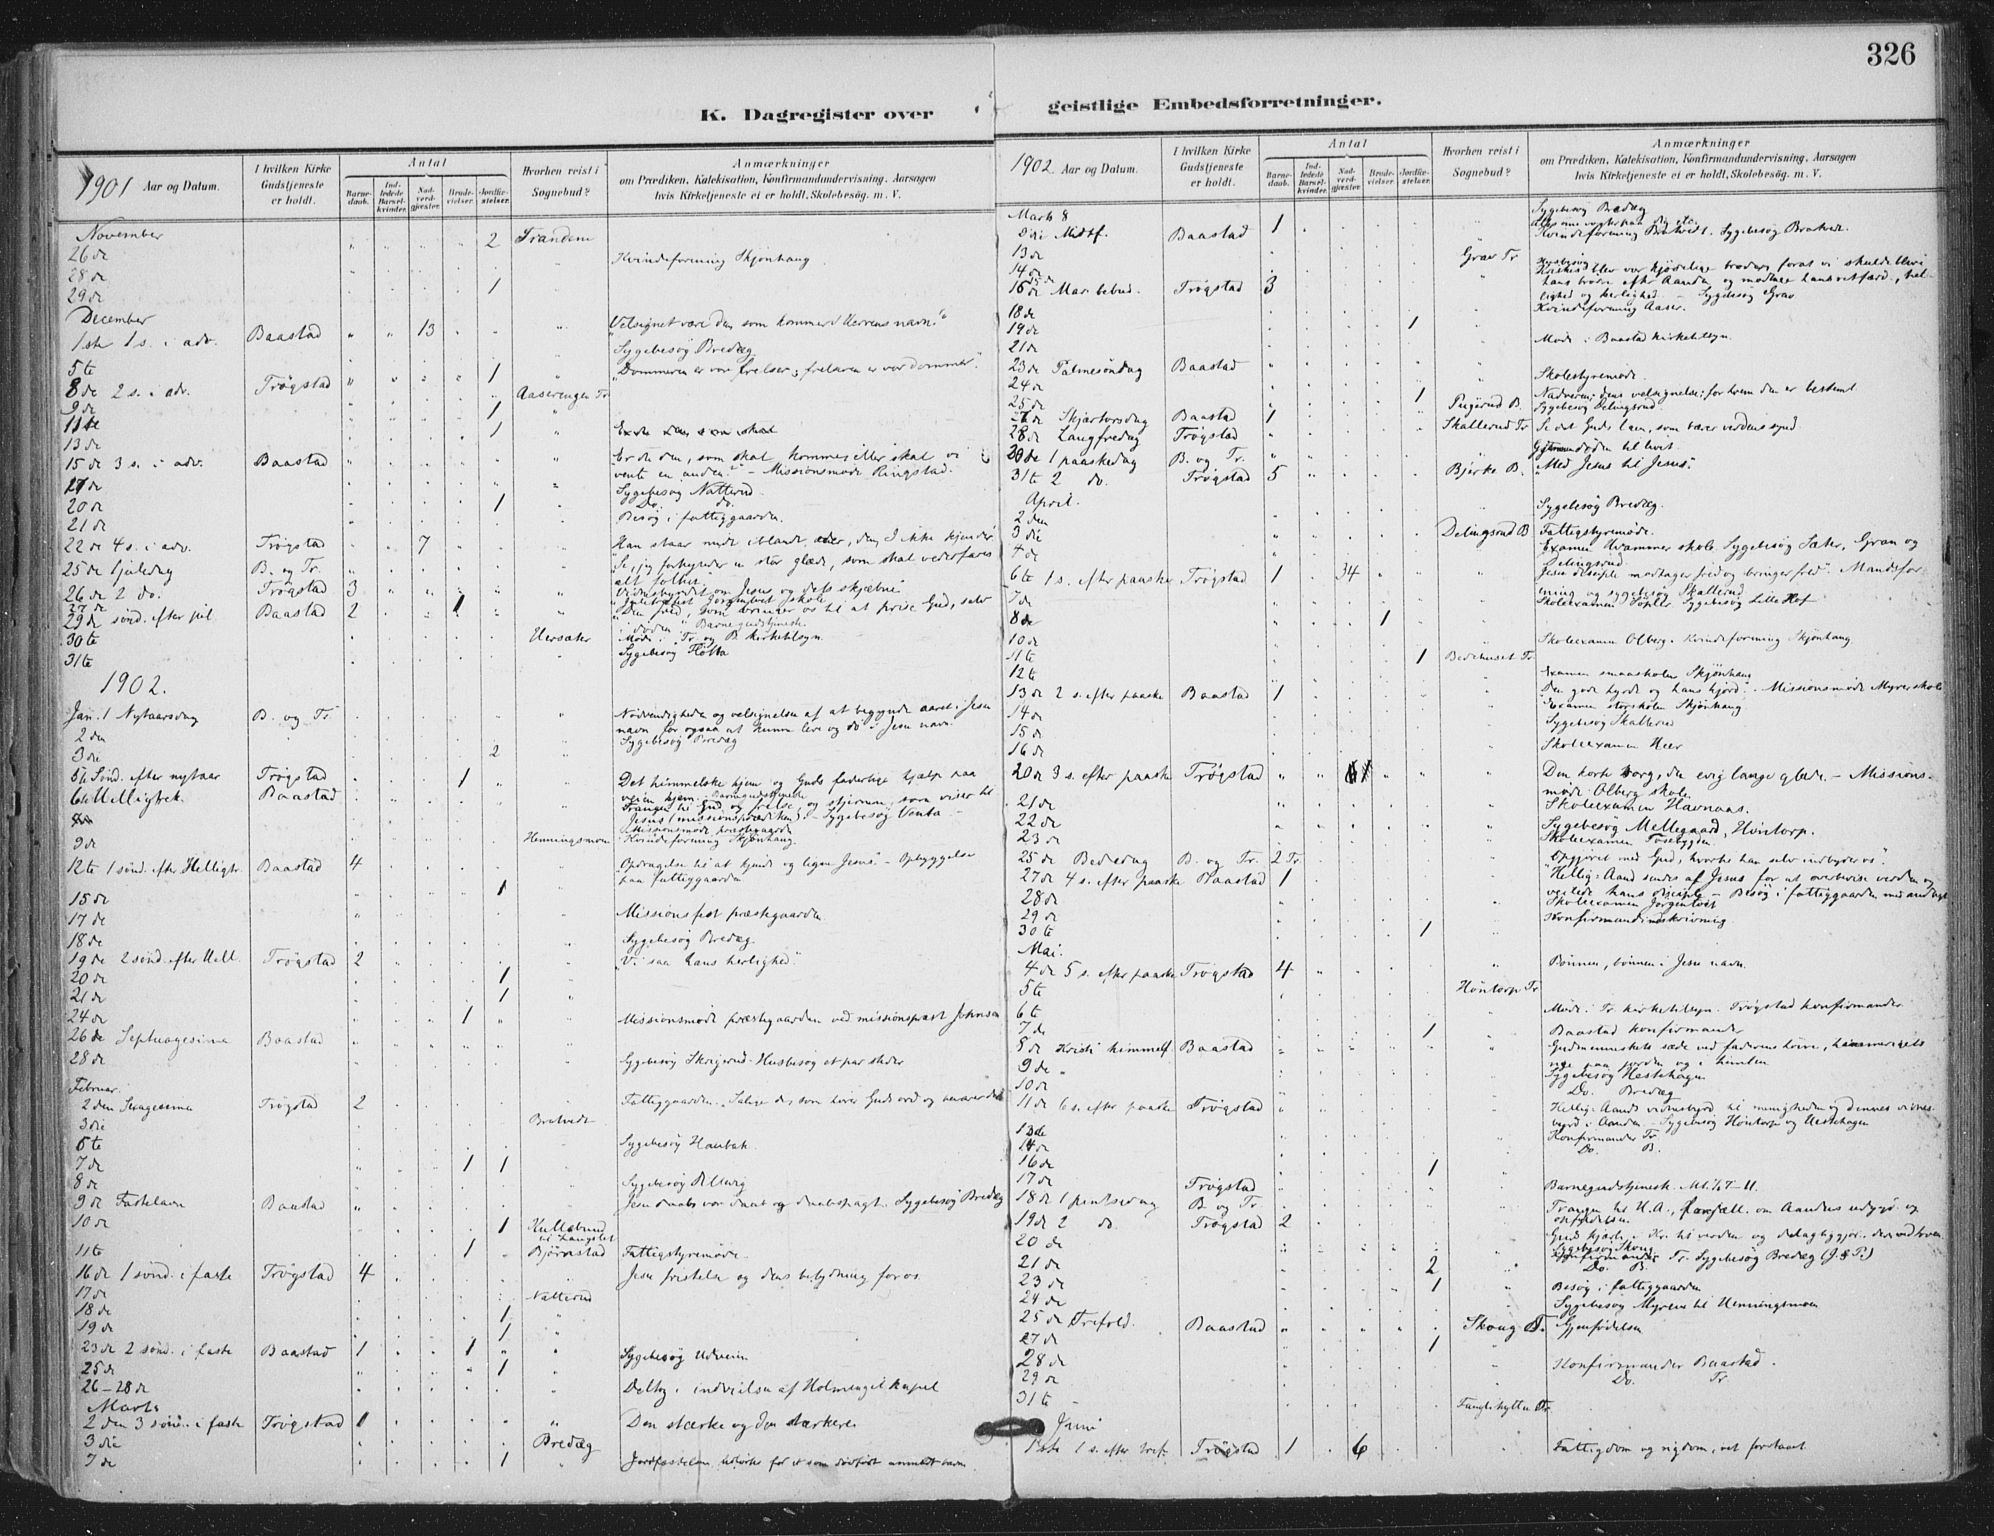 326
K. Dagregister over geistlige Embedsforretninger.
1901 Aar og Datum.
I hvilken Kirke Gudstjeneste er holdt.
Antal
Barnedaab.
Indledede Barselkvinder.
Nadverdgjester.
Brudevielser.
Jordfæstelser.
Hvorhen reist i Sognebud?
Anmærkninger
om Prædiken, Katekisation, Konfirmandundervisning, Aarsagen
hvis Kirketjeneste ei er holdt, Skolebesøg, m. V.
November 2 Frandem
26 de
28 de Kvindeforening Skjønhaug
29 de 1
December
1ste 1 s. i adv. Baastad 13 "Velsignet være den som kommer i Herrens navn!"
5te Sygebesøg Bredæg
8 de 2 s. i adv. Trøgstad 1 "Dommeren er vor frelser; frelseren er vor dommer".
9 de Aaserengen Tr.
11te 1
13 de 1
15 de 3 s. i adv. Baastad Er du den, som skal komme, eller skal vi
vente en anden?" - Missionsmøde Ringstad.
17de Sygebesøg Natterud.
20 de 1 Do. do.
21 de Besøg i fattiggaarden
22 de 4 s. i adv. Trøgstad 7 Han staar midt iblandt eder, den I ikke kjender
25 de 1 juledag B. og Tr. Se, jeg forkynder en stor glæde, som skal vederfares
alt folket.
26 de 2 do. Trøgstad 3 Vidnesbyrdet om Jesus og dets skjæbne
27 de 1
29 de sønd. efter jul Baastad 2 Den fred, som bringer os til at prise Gud, selv
i døden. Barnegudstjeneste
30 te Uersæter Møde i Tr. og B. kirketilsyn.
31 te Sygebesøg Høltta
1902.
Jan. 1 Nytaarsdag B. og Tr. Nødvendigheden og velsignelsen af at begynde aaret i Jesu
navn for ogsaa at kunne leve og dø i Jesu navn.
2 den Sygebesøg Bredæg
3 die 2
5te Sønd. efter nytaar Trøgstad 1 Det himmelske hjem og Guds faderlige hjælp paa
veien hjem. Barnegudstjeneste
6te Helligtrek. Baastad Trangen til Gud og frelse, og stjernen, som viser til
Jesus (missionsprædiken). - Sygebesøg Venta
Missionsmøde præstegaarden
9 de Henningsmoen Kvindeforening Skjønhaug.
12te 1 sønd. efter Helligtr. Baastad 4 Opdragelse til at kjende og ligne Jesus - Opbyggelse
paa fattiggaarden
15 de 1
17 de Missionsfest præstegaarden
18 de Sygebesøg Bredæg.
19 de 2 sønd. efter Hell. Trøgstad 2 "Vi saa hans herlighed."
20 de 1
21 de 1
24 de 1 Missionsmøde præstegaarden ved missionsprest Johnson
26 de Septuagesima Baastad
28 de Sygebesøg Skrigerud. Husbesøg et par steder
Februar.
2 den Sexagesima Trøgstad 2 Fattiggaarden. Salige de, som hører Guds ord og bevarer det
3 die Bratvedt
5 te Sygebesøg Haubak.
7 de 1 1
8 de
9 de Fastelavn Baastad Jesu daabs vor daab og daabspagt. Sygebesøg Bredæg
10 de 1 Kullebund til Langslet
11 te 1 Bjørnstad Fattigstyremøde.
16 de 1 sønd. i faste Trøgstad 4 Jesu fristelse og dens betydning for os.
17 de Natterud
18 de 1
19 de 1
23 de 2 sønd. i faste Baastad 1 1 Sygebesøg Udveien
25 de 1
26-28 de Deltog i indvielsen af Holmengil kapel
Marts
2 den 3 sønd. i faste Trøgstad 1 Den stærke og den stærkere
3 die Bredæg
7 de 1
1902. Aar og Datum.
I hvilken Kirke Gudstjeneste er holdt.
Antal
Barnedaab.
Indledede Barselkvinder.
Nadverdgjester.
Brudevielser.
Jordfæstelser.
Hvorhen reist i Sognebud?
Anmærkninger
om Prædiken, Katekisation, Konfirmandundervisning, Aarsagen
hvis Kirketjeneste ei er holdt, Skolebesøg, m. V.
Marts 8 Sygebesøg Bredæg
9 de Midtf. Baastad 1
13 de Kvindeforening Bratvedt. Sygebesøg Bratvedt.
14 de Grav Tr. Husbesøg
16 de Mar. bebud. Trøgstad 3 Kristus blev vor kjødelige broder, forat vi skulde blive
hans brødre efter Aanden og modtage hans retfærd., hellighed og herlighed - Sygebesøg Grav
18 de Kvindeforening Aaser.
19 de 1
21 de Møde i Baastad kirketilsyn.
23 de Palmesøndag Baastad
24 de Skolestyremøde.
25 de 1 Nadveren; dens velsignelse; for hvem den er bestemt
27 de Skjærtorsdag Baastad 1 Pugerud B. Sygebesøg Delingsrud
28 de Langfredag Trøgstad Skallerud Tr. Se det Guds lam, som bærer verdens synd
30 de 1 paaskedag B. og Tr. Gjennem døden til livet
31te 2 do. Trøgstad 5 Bjerke B. "Med Jesus til Jesus".
April.
2 den Sygebesøg Bredæg.
3 die Delingsrud B Fattigstyremøde.
4 de Examen Hvammer skole. Sygebesøg Sæter, Gran og
Delingsrud
6 te 1 s. efter paaske Trøgstad 1 34 Jesu disciple modtager fred og bringer fred". Mandsforening og sygebesøg Skallerud
7 de Sygebesøg Lille Hof
8 de 1
10 de Skoleexamen Olberg. Kvindeforening Skjønhaug
11 te 1 Bedehuset Tr.
12 te Examen smaaskolen Skjønhaug
13 de 2 s. efter paaske Baastad 1 "Den gode hyrde og hans hjord". Missionsmøde Myrer skole
14 de Examen storskolen Skjønhaug
15 de Sygebesøg Skallerud
16 de Skoleexamen Heer
20 de 3 s. efter paaske Trøgstad Den korte sorg, den evig lange glæde. - Missionsmøde Olberg skole.
21 de Skoleexamen Havnaas.
22 de Sygebesøg Mellegaard, Høntorp.
23 de Skoleexamen Fosebygden.
25 de Bededag B. og Tr. 2 Tr. Opgjøret med Gud, hvortil han selv indbyder os".
27 de 4 s. efter paaske Baastad 1 Hellig-Aand sendes af Jesus for at overbevise verden og
veilede hans disciple - Besøg i fattiggaarden med andagt
28 de Skoleexamen Jørgentvet
29 de Konfirmandindskrivning.
30 te 1
Mai.
4 de 5 s. efter paaske Trøgstad 4 Bønnen, bønnen i Jesu navn.
5 te Høntorp Tr.
6 te Møde i Tr. kirketilsyn. Trøgstad konfirmander
7 de 1 Baastad konfirmander
8 de Kristi himmelf. Baastad Gudmenneskets sæde ved faderens høire, himmeriges
rige paa jorden og i himlen
9 de Sygebesøg Hestehagen
10 de Do. Bredæg
11 de 6 s. efter paaske Trøgstad Hellig-Aands vidnesbyrd til menigheden og dennes vidnesbyrd i Aanden - Sygebesøg Høntorp og Hestehagen
13de Konfirmander Tr.
14 de Do. B.
16 de 1
17 de Trøgstad Barnegudstjeneste.
18 de 1 pintsedag B. og Tr. Trangen til H. A.,
19 de 2 do. Trøgstad 2
20 de Sygebesøg Skoug
21 de 2 Konfirmander Tr. Sygebesøg Bredæg
23 de 1 Do. B.
24 de Besøg i fattiggaarden
Sygebesøg Myrene til Henningsmoen
25 de Trefold. Baastad Skoug Tr. Gjenfødelsen
27 de 1
28 de Konfirmander Baastad.
29 de Do. Tr.
31 te
Juni
1ste 1 s. efter tref. Trøgstad 1 6 Fattigdom og rigdom, ret forstaaet